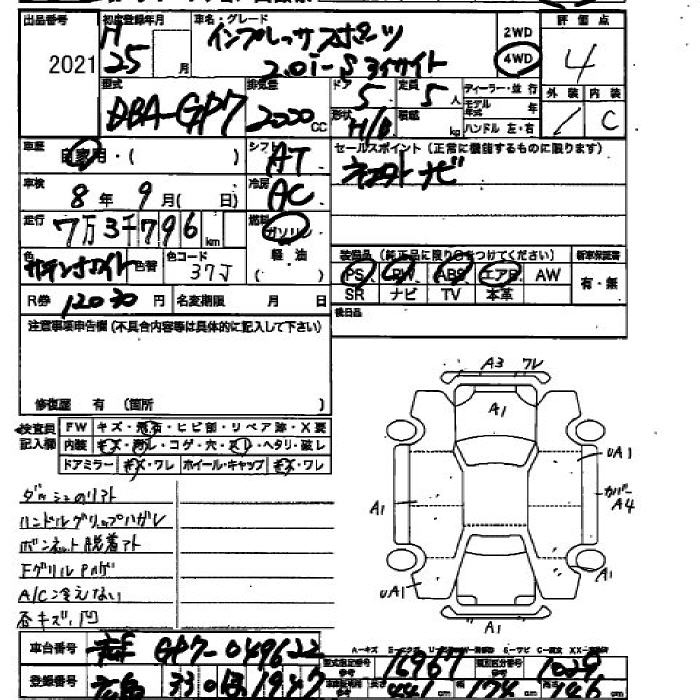 出品番号 初度登録年月 車名・グレード 評価点
2021 H 25 月 インプレッサスポーツ 2WD 4WD 4
2.0i-S アイサイト
型式 排気量 ドア 定員 ディーラー・並行 外装 内装
DBA-GP7 2000 CC 5 5人 モデル年式 年 C
形状 H/B 積載 kg ハンドル 左・右
車歴 自家用・( ) シフト AT セールスポイント (正常に機能するものに限ります)
車検 8年 9月( 日) 冷房 AC ナビ
走行 7万3千796 km 燃料 ガソリン
軽油 装備品 (純正品に限り○をつけてください) 新車保証書
色 サテンホワイト 色替 色コード 37J PS PW ABS エアB AW 有・無
R券 12030 円 名変期限 月 日 SR ナビ TV 本革
注意事項申告欄 (不具合内容等は具体的に記入して下さい) 後日品
修復歴 有 (箇所 )
検査員記入欄 FW キズ・飛石・ヒビ部・リペア跡・X要
内装 キズ・汚レ・コゲ・穴・スリ・ヘタリ・破レ
ドアミラー キズ・ワレ ホイール・キャップ キズ・ワレ
ダッシュのリアト
ハンドルグリップハガレ
ボンネット脱着アト
FグリルPハゲ
A/C冷えない
各キズ、凹
A3 ワレ
A1
UA1
カバー
A4
A1
UA1
A1
A1
車台番号 GP7-049622 型式指定番号 16967 類別区分番号 1029
登録番号 広島 330 1947 長さ 441 cm 幅 174 cm 高さ 146 cm